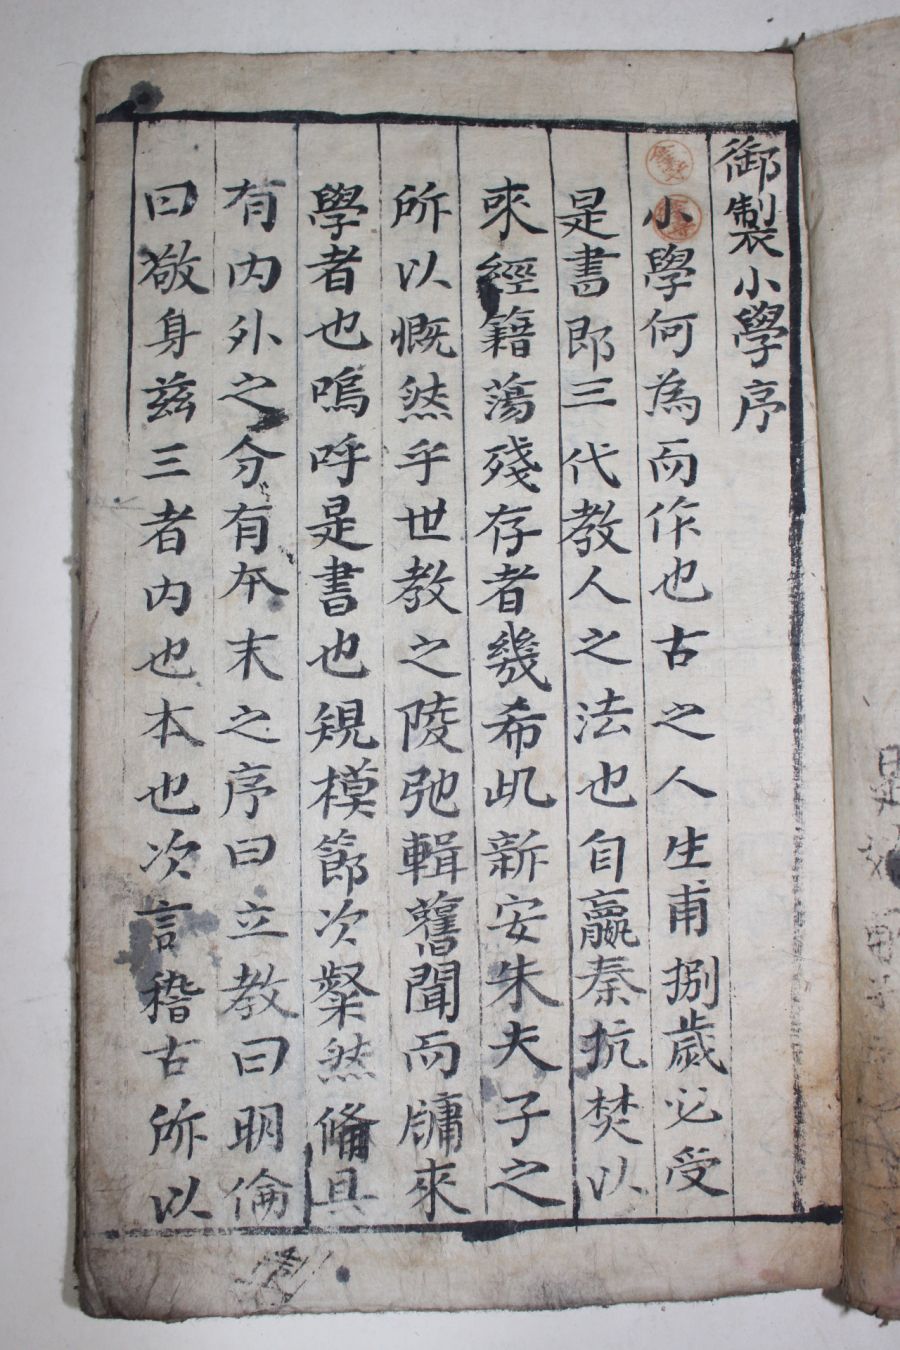 御製小學序
小學何為而作也古之人生甫捌歲必受
是書即三代教人之法也自嬴秦坑焚以
來經籍蕩殘存者幾希此新安朱夫子之
所以慨然乎世教之陵弛輯舊聞而牖來
學者也嗚呼是書也規模節次粲然備具
有内外之分有本末之序曰立教曰明倫
曰敬身兹三者内也本也次言稽古所以